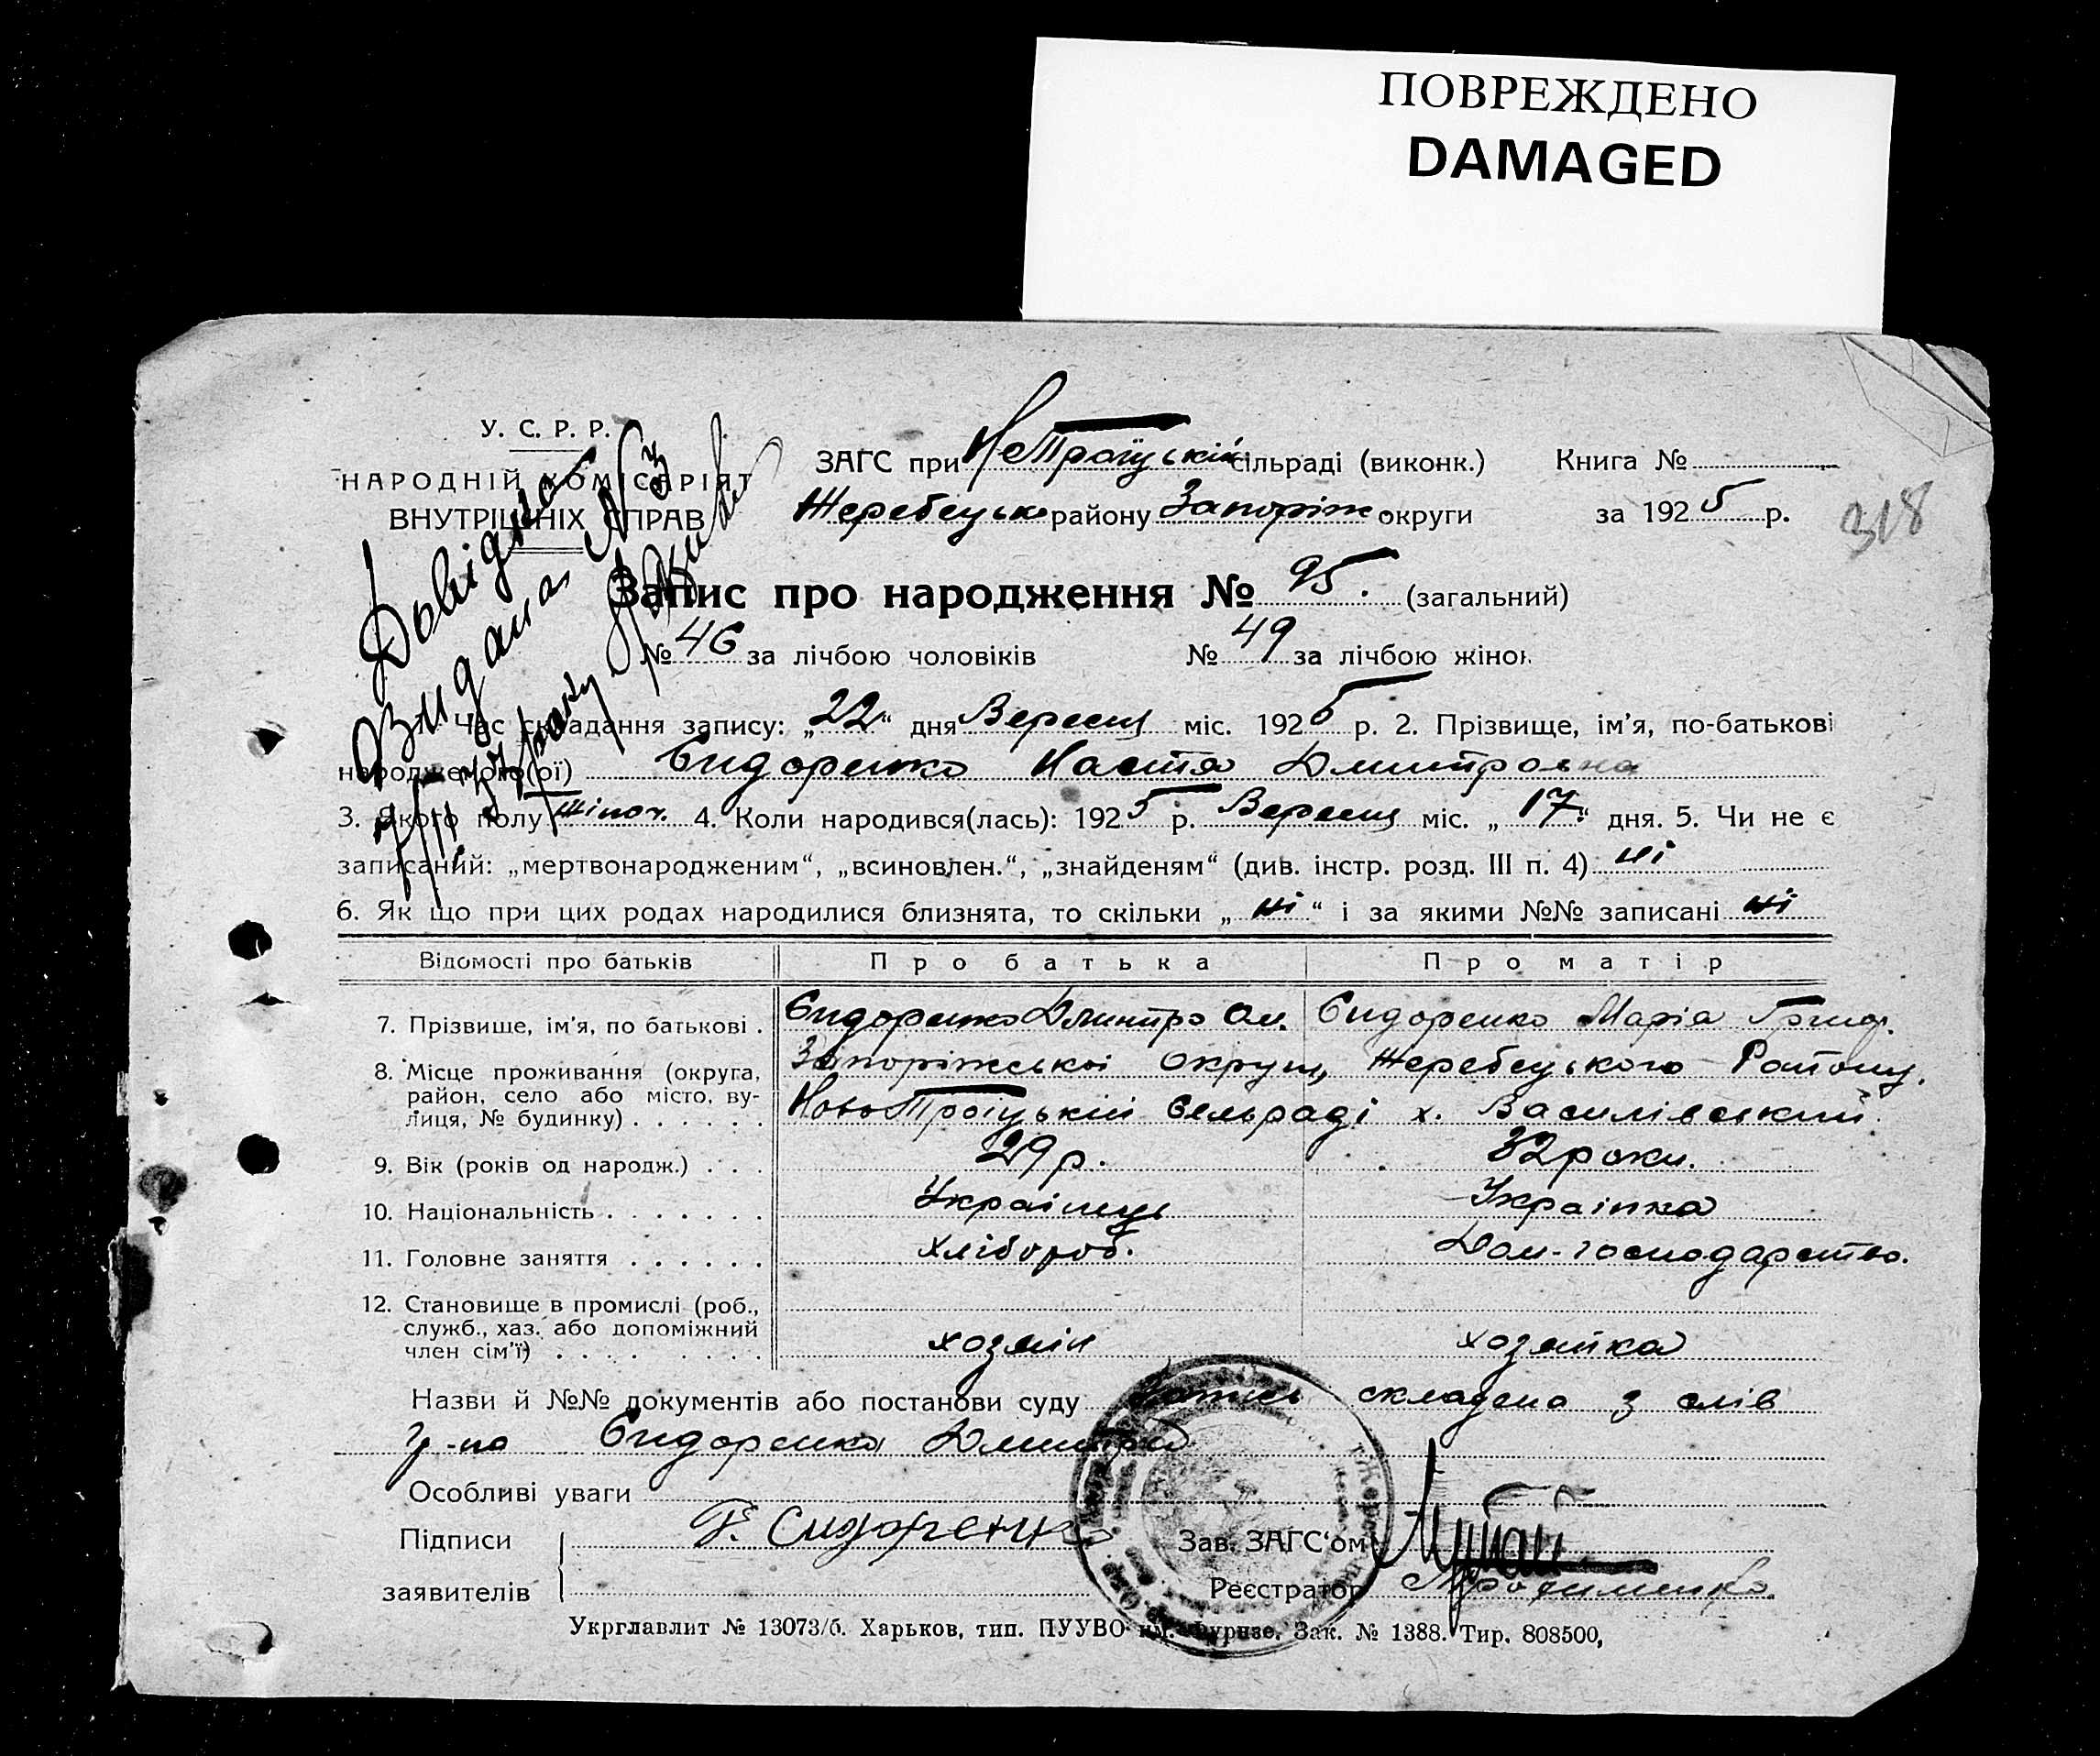 ПОВРЕЖДЕНО
DAMAGED
У. С. Р. Р.
НАРОДНІЙ КОМІСАРІЯТ
ВНУТРІШНІХ СПРАВ
Довідка
Видана №3
ЗАГС при НоТроїцькій сільраді (виконк.) Книга №
Жеребецьк. району Запоріж. округи за 1925 р.
318
Запис про народження № 95. (загальний)
№ 46 за лічбою чоловіків № 49 за лічбою жінок
Час складання запису: „22“ дня Вересня міс. 1925 р. 2. Прізвище, ім’я, по-батькові
народженого(ої) Сидоренко Настя Дмитровна
3. Якого полу жіноч. 4. Коли народився(лась): 1925 р. Вересня міс. „17“ дня. 5. Чи не є
записаний: „мертвонародженим“, „всиновлен.“, „знайденям“ (див. інстр. розд. III п. 4) ні
6. Як що при цих родах народилися близнята, то скільки „ні“ і за якими №№ записані ні
Відомості про батьків Про батька Про матір
7. Прізвище, ім’я, по батькові . Сидоренко Дмитро Ол. Сидоренко Марія Григ.
8. Місце проживання (округа, район, село або місто, вулиця, № будинку) . . . . . . Запоріжської округи, Жеребецького Району.
НовоТроїцькій Сельраді х. Василівський
9. Вік (років од народж.) . . . 29 р. 32 роки.
10. Національність . . . . . . . Українець Українка
11. Головне заняття . . . . . . Хлібороб. Дом-господарство.
12. Становище в промислі (роб., служб., хаз. або допоміжний член сім’ї) . . . . . . . . хозяїн хозяйка
Назви й №№ документів або постанови суду Запись складено з слів
гр-на Сидоренка Дмитра
Особливі уваги
Підписи Сидоренко Зав. ЗАГС‘ом
заявителів Реєстратор
Укрглавлит № 13073/б. Харьков, тип. ПУУВО им. Фрунзе. Зак. № 1388. Тир. 808500,